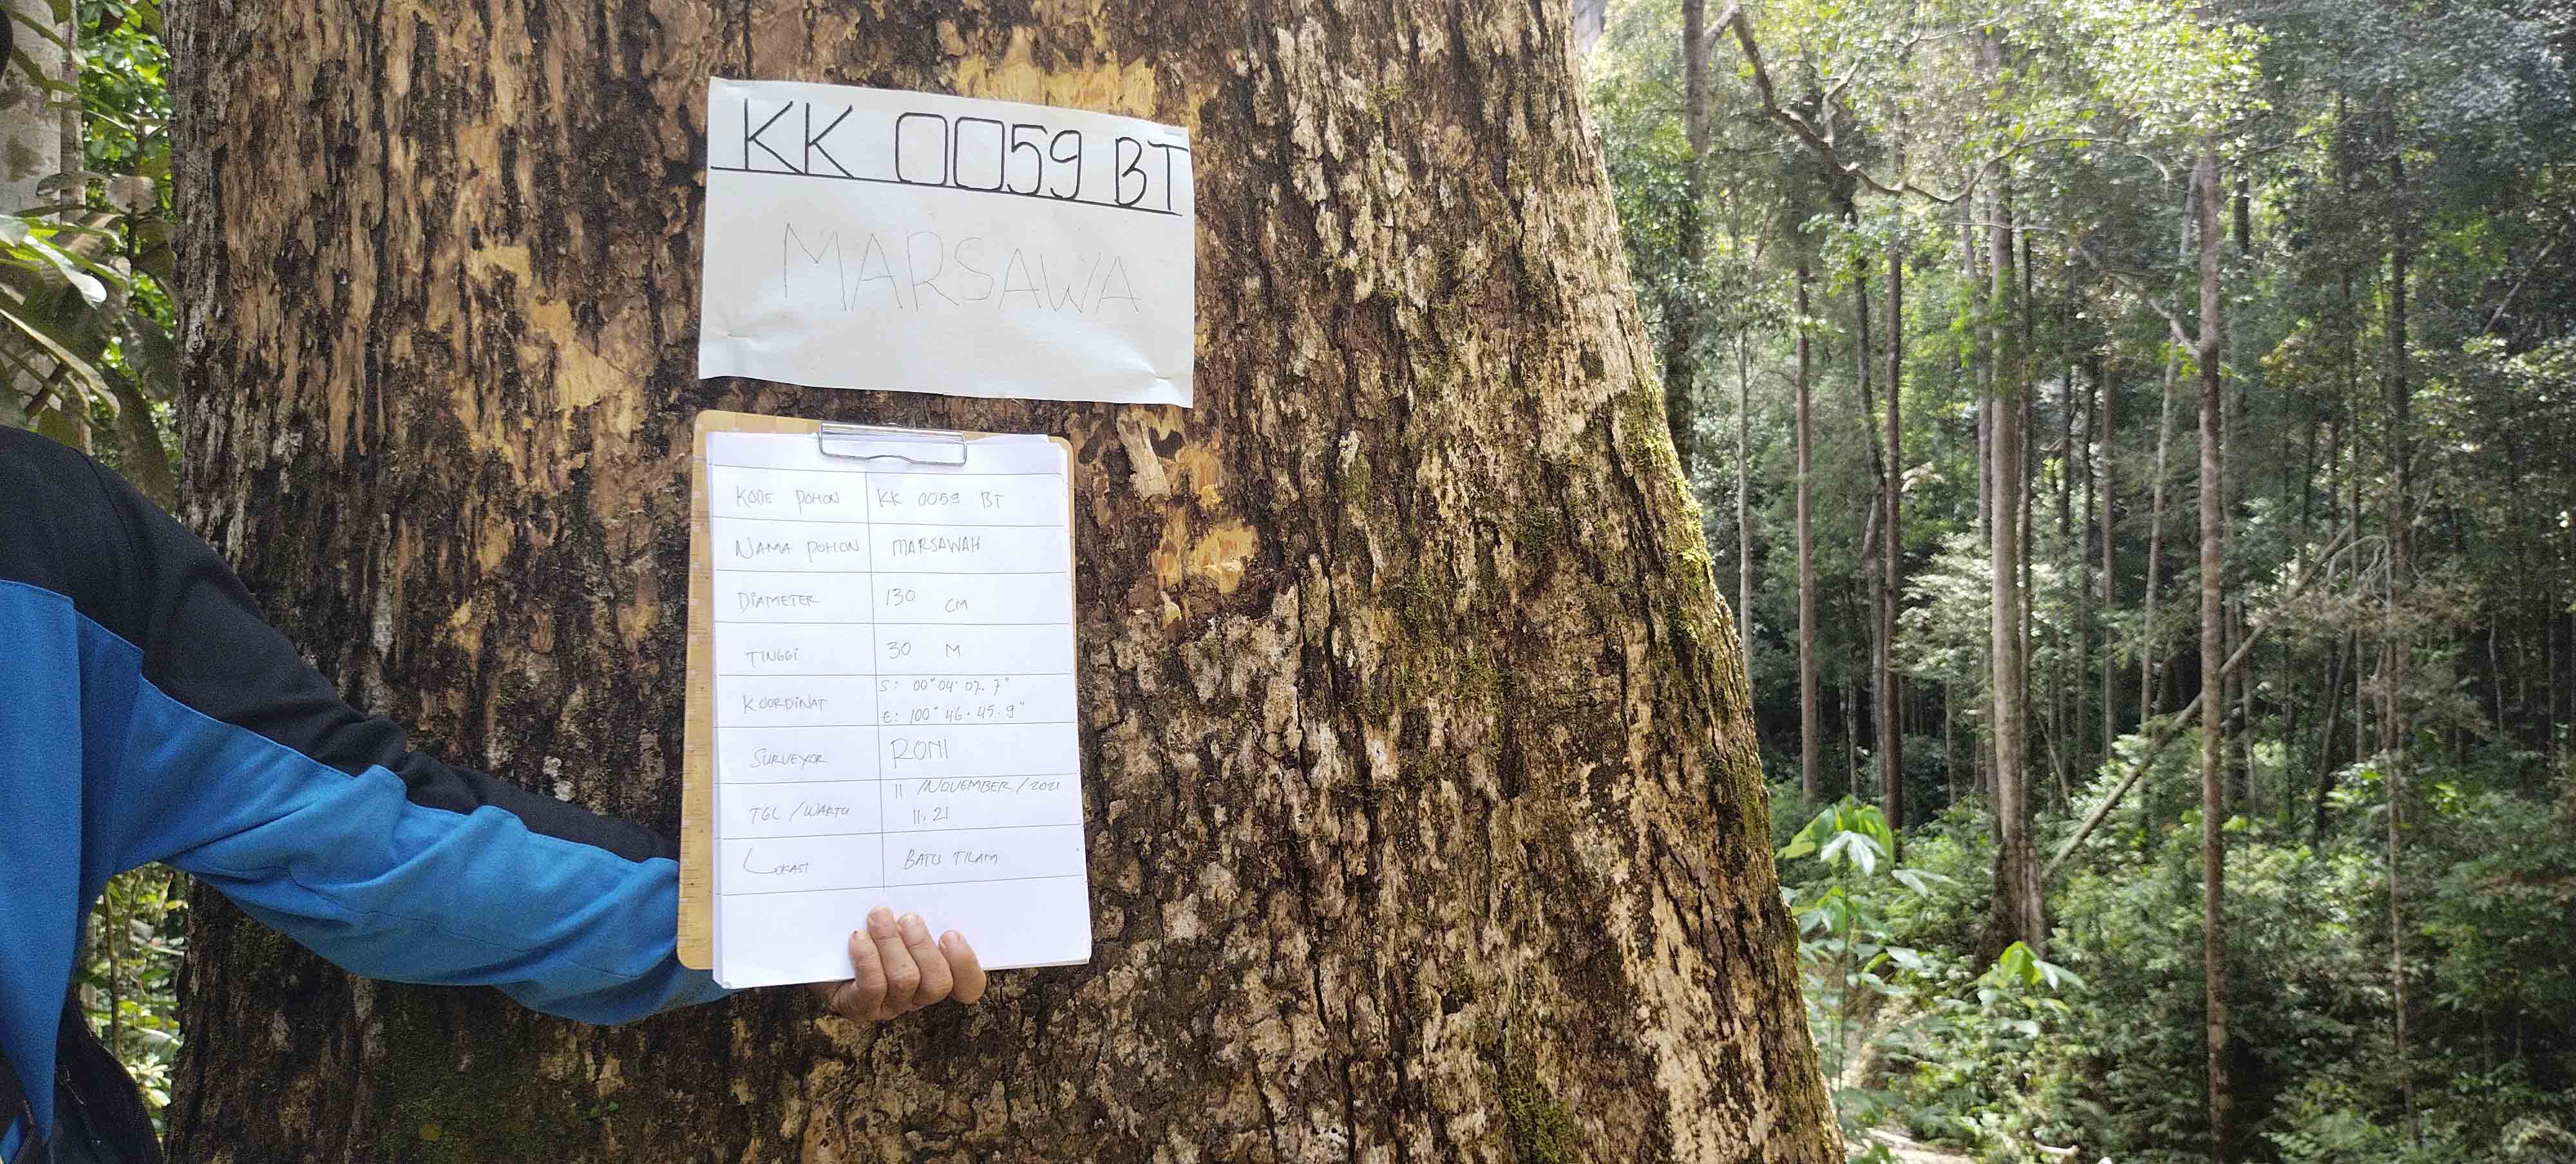 KK 0059 BT
MARSAWA
KODE POHON KK 0059 BT
NAMA POHON MARSAWAH
DIAMETER 130 CM
TINGGI 30 M
KOORDINAT S: 00° 04' 07.7"
E: 100° 46. 45.9"
SURVEYOR RONI
TGL / WAKTU 11 / NOVEMBER / 2021
11.21
LOKASI BATU TILAM